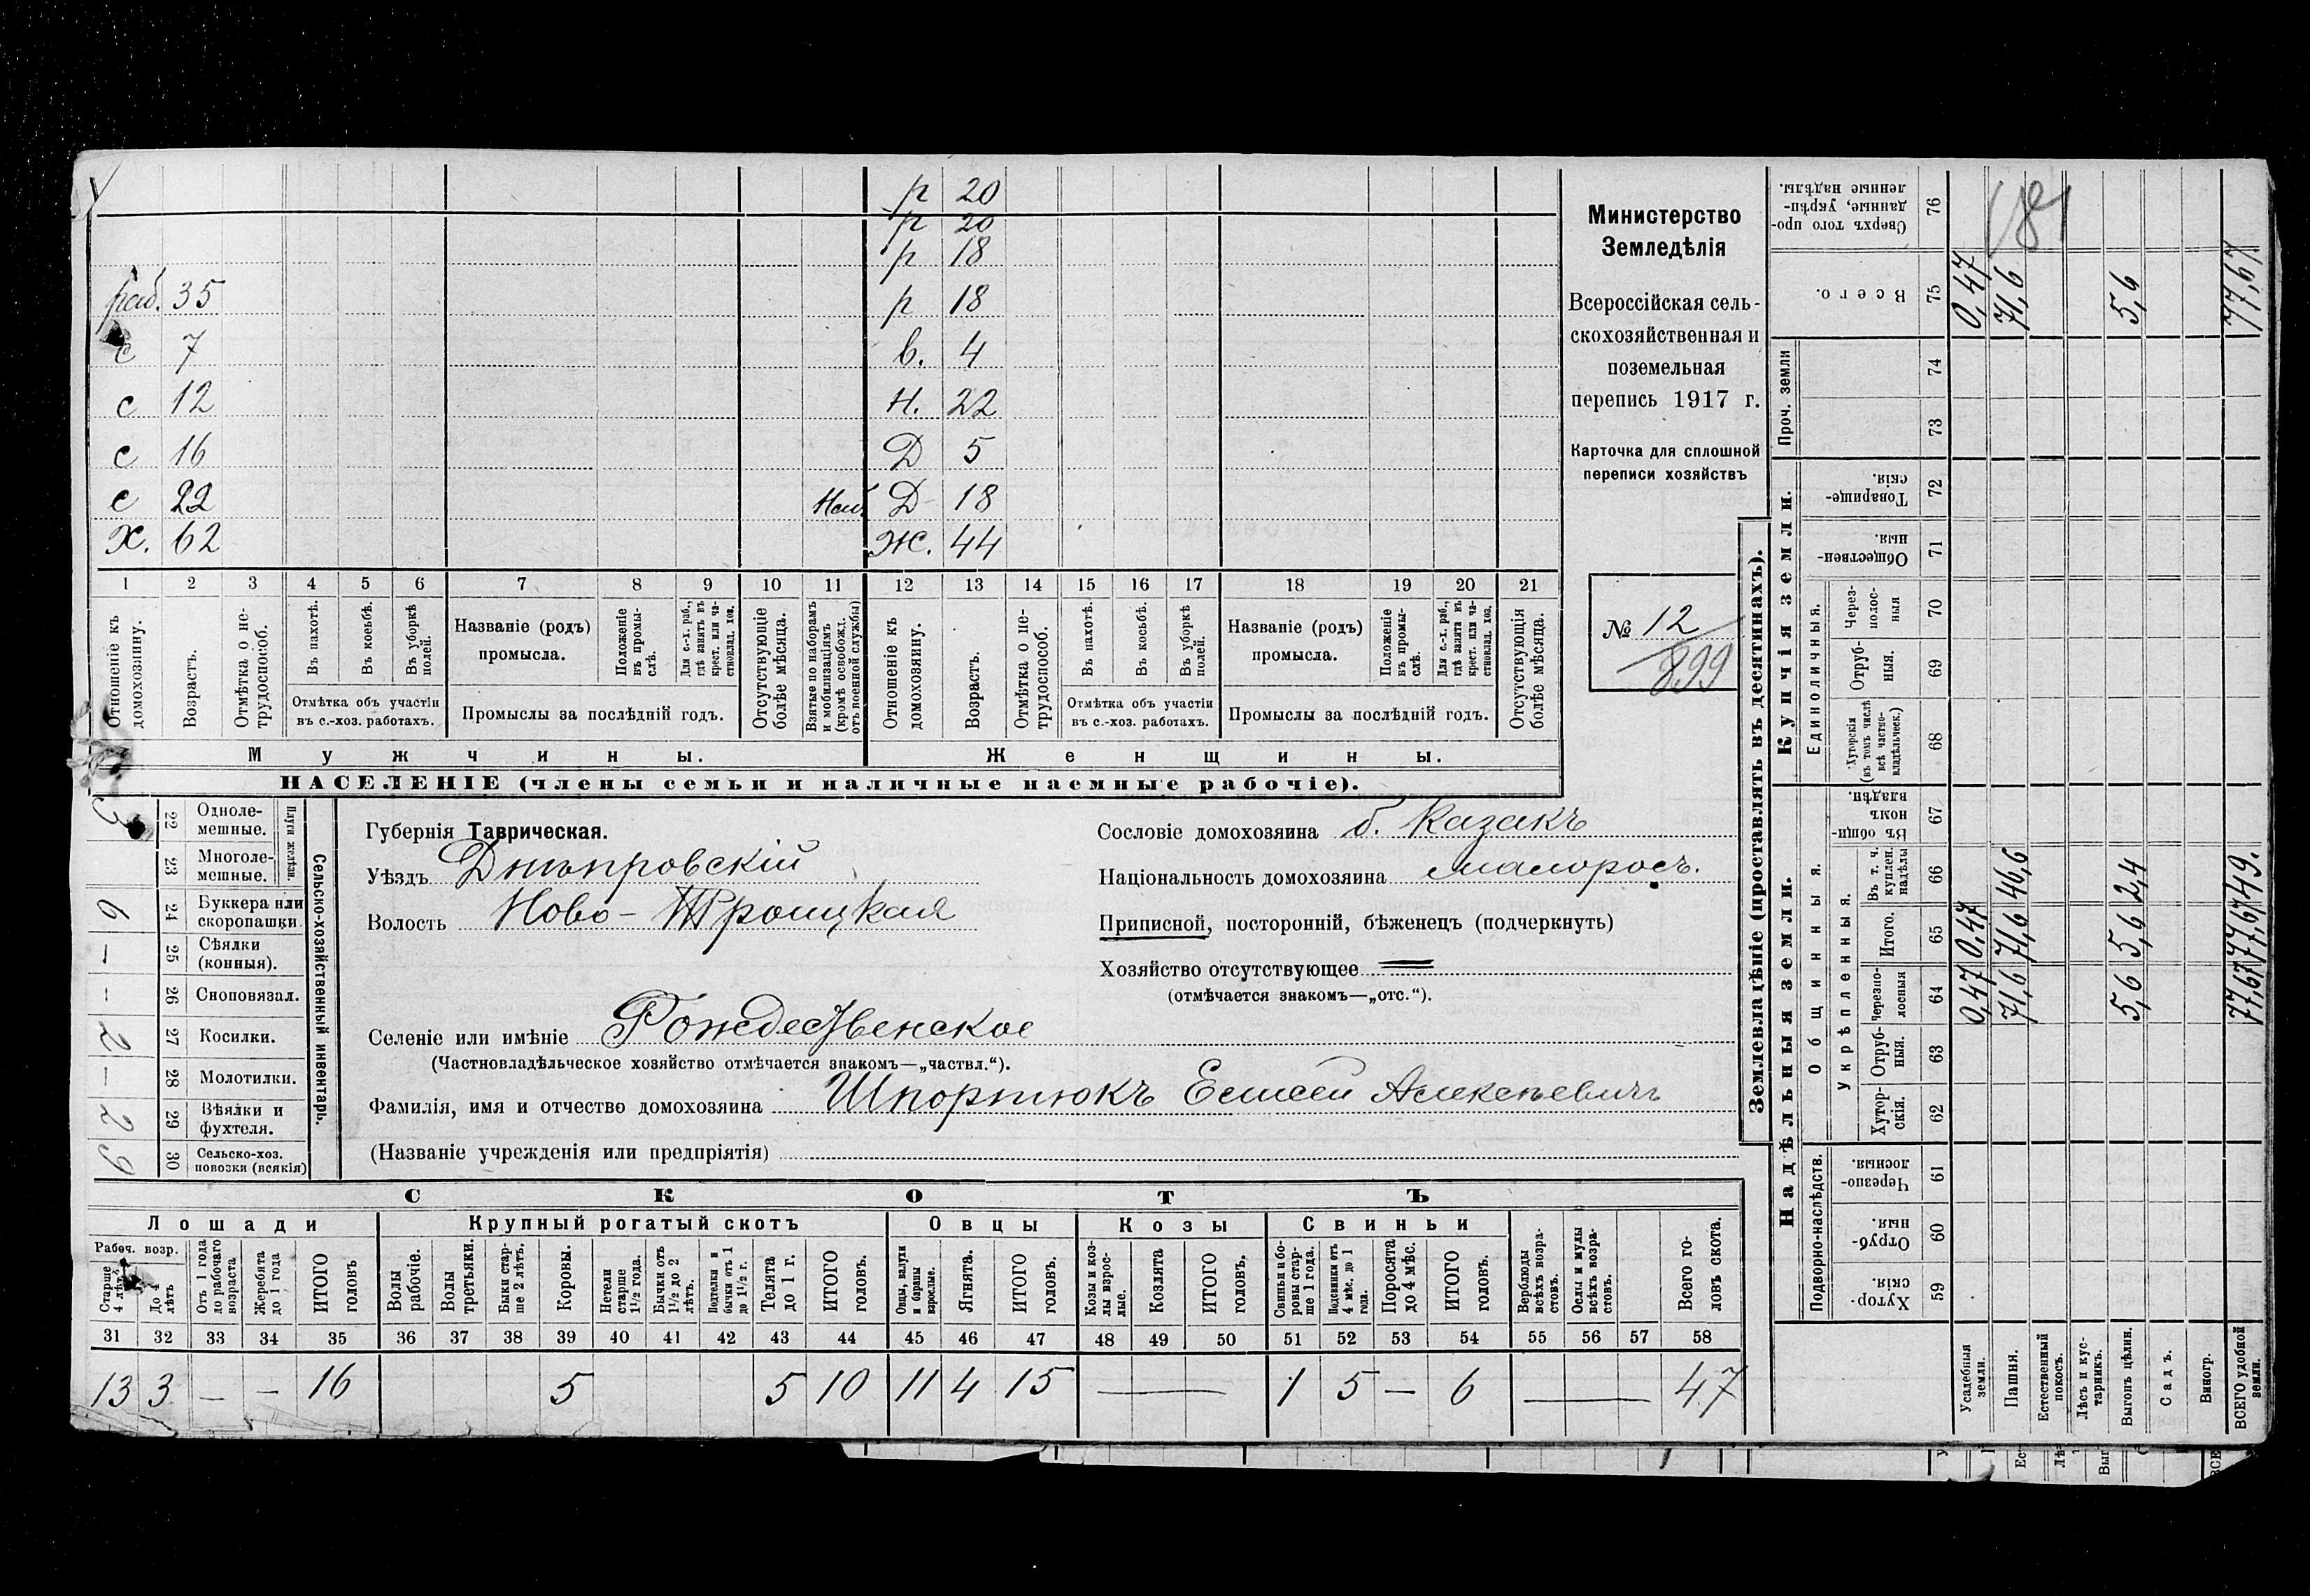 р 20
р 20
р 18
раб. 35 р 18
с 7 в. 4
с 12 Н. 22
с 16 Д 5
с 22 Д 18
Х. 62 Ж. 44
1 2 3 4 5 6 7 8 9 10 11 12 13 14 15 16 17 18 19 20 21
Отношеніе къ домохозяину.
Возрастъ.
Отмѣтка о не-трудоспособ.
Въ пахотѣ.
Въ косьбѣ.
Въ уборкѣ полей.
Отмѣтка объ участіи
въ с.-хоз. работахъ.
Названіе (родъ)
промысла.
Положеніе въ промы-слѣ.
Для с.-х. раб., гдѣ занятъ въ крест. или ча-стновлад. хоз.
Промыслы за послѣдній годъ.
Отсутствующіе болѣе мѣсяца.
Взятые по наборамъ и мобилизаціямъ (кромѣ освобожд. отъ военной службы)
Отношеніе къ домохозяину.
Возрастъ.
Отмѣтка о не-трудоспособ.
Въ пахотѣ.
Въ косьбѣ.
Въ уборкѣ полей.
Отмѣтка объ участіи
въ с.-хоз. работахъ.
Названіе (родъ)
промысла.
Положеніе въ промы-слѣ.
Для с.-х. раб., гдѣ занята въ крест. или ча-стновлад. хоз.
Промыслы за послѣдній годъ.
Отсутствующія болѣе мѣсяца.
Мужчины. Женщины.
НАСЕЛЕНІЕ (члены семьи и наличные наемные рабочіе).
Министерство
Земледѣлія
Всероссійская сель-
скохозяйственная и
поземельная
перепись 1917 г.
Карточка для сплошной
переписи хозяйствъ
№ 12
899
Сельско-хозяйственный инвентарь.
Плуги желѣзн.
3 22 Одноле-мешные.
23 Многоле-мешные.
6 24 Буккера или скоропашки
— 25 Сѣялки (конныя).
— 26 Сноповязал.
2 27 Косилки.
— 28 Молотилки.
2 29 Вѣялки и фухтеля.
9 30 Сельско-хоз. повозки (всякія)
Губернія Таврическая.
Уѣздъ Днѣпровскій
Волость Ново-Троицкая
Сословіе домохозяина б. Казакъ
Національность домохозяина малоросъ.
Приписной, посторонній, бѣженецъ (подчеркнуть)
Хозяйство отсутствующее —
(отмѣчается знакомъ—„отс.“).
Селеніе или имѣніе Рождественское
(Частновладѣльческое хозяйство отмѣчается знакомъ—„частвл.“).
Фамилія, имя и отчество домохозяина Шпортюкъ Елисей Алексѣевичъ
(Названіе учрежденія или предпріятія)
СКОТЪ
Лошади Крупный рогатый скотъ Овцы Козы Свиньи
Рабоч. возр.
Старше 4 лѣтъ
До 4 лѣтъ
Отъ 1 года до рабочаго возраста
Жеребята до 1 года
ИТОГО головъ
Волы рабочіе.
Волы третьяки.
Быки стар-ше 2 лѣтъ.
Коровы.
Нетели старше 1½ года.
Бычки отъ 1½ до 2 лѣтъ.
Подтелки и бычки отъ 1 до 1½ г.
Телята до 1 г.
ИТОГО головъ.
Овцы, валухи и бараны взрослые.
Ягнята.
ИТОГО головъ.
Козы и коз-лы взрос-лые.
Козлята
ИТОГО головъ.
Свиньи и бо-ровы стар-ше 1 года.
Подсвинки отъ 4 мѣс. до 1 года.
Поросята до 4 мѣс.
ИТОГО головъ.
Верблюды всѣхъ возра-стовъ.
Ослы и мулы всѣхъ возра-стовъ.
Всего го-ловъ скота.
31 32 33 34 35 36 37 38 39 40 41 42 43 44 45 46 47 48 49 50 51 52 53 54 55 56 57 58
13 3 — — 16 5 5 10 11 4 15 — 1 5 — 6 — 47
Землевладѣніе (проставлять въ десятинахъ).
Надѣльныя земли. Купчія земли. Проч. земли
Подворно-наслѣдств.
Общинныя.
Укрѣпленныя.
Единоличныя.
59 Хутор-скія.
60 Отруб-ныя.
61 Черезпо-лосныя.
62 Хутор-скія.
63 Отруб-ныя.
64 Черезпо-лосныя
65 Итого.
66 Въ т. ч. куплен. надѣлы
67 Въ общин-номъ владѣн.
68 Хуторскія (въ томъ числѣ всѣ частно-владѣльческ.)
69 Отруб-ныя.
70 Через-полос-ныя
71 Обществен-ныя.
72 Товарище-скія.
73
74
75 Всего.
76 Сверхъ того про-данные, укрѣп-ленные надѣлы.
Усадебныя земли. 0,47 0,47 0,47
Пашня. 71,6 71,6 46,6 71,6
Естественный покосъ.
Лѣсъ и кус-тарникъ.
Выгонъ цѣлин. 5,6 5,6 2,4 5,6
Садъ.
Виногр.
ВСЕГО удобной земли. 77,67 77,67 49. 77,67